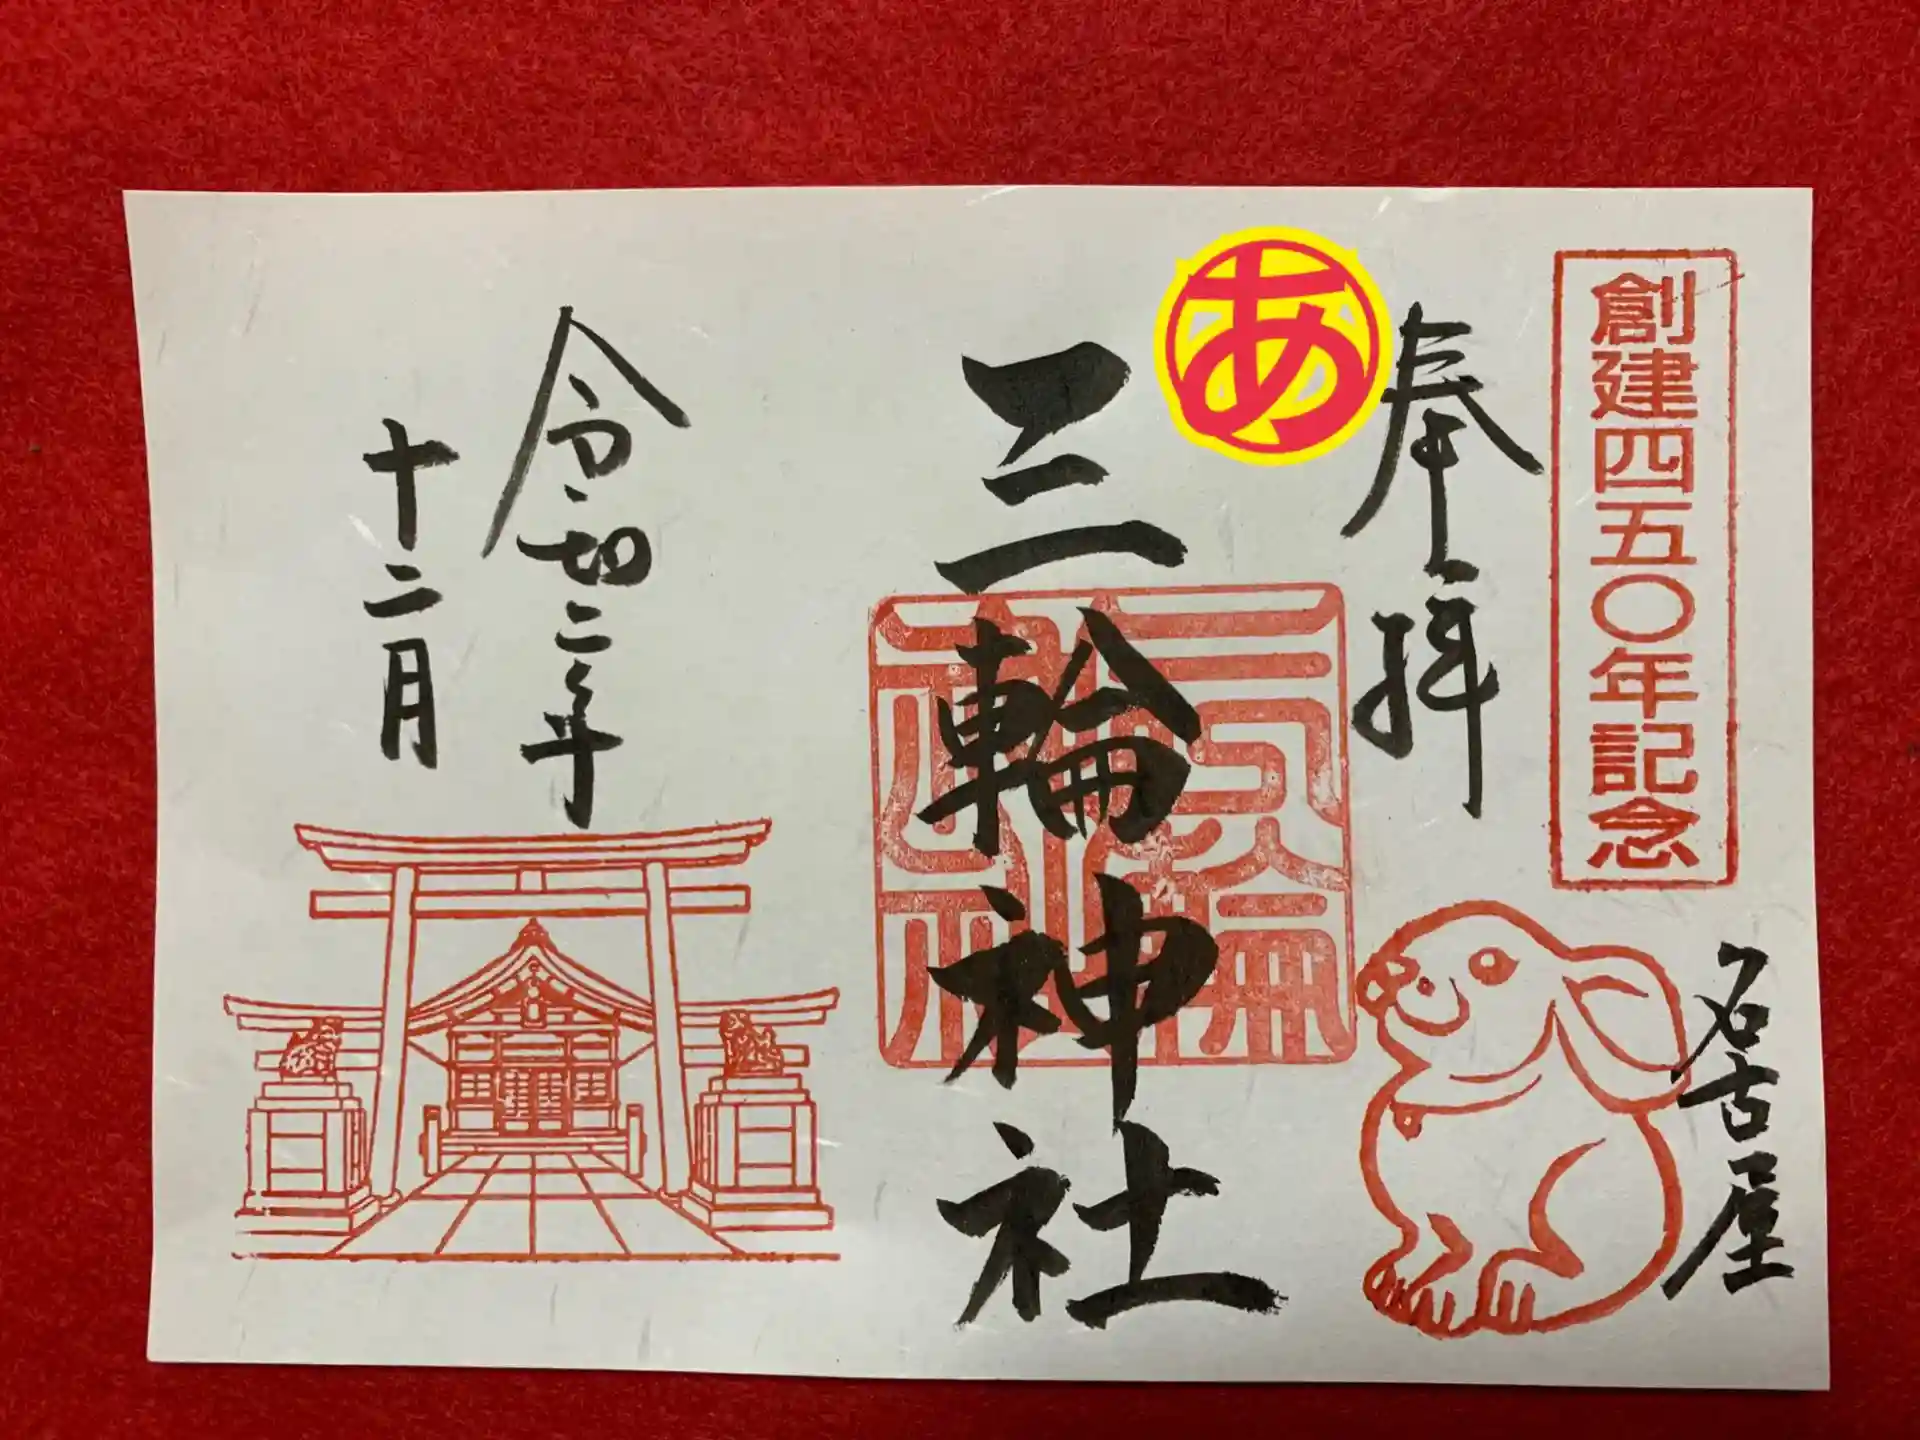 創建四五〇年記念
奉拝
名古屋
あ
三輪神社
三輪神社
令和二年
十二月